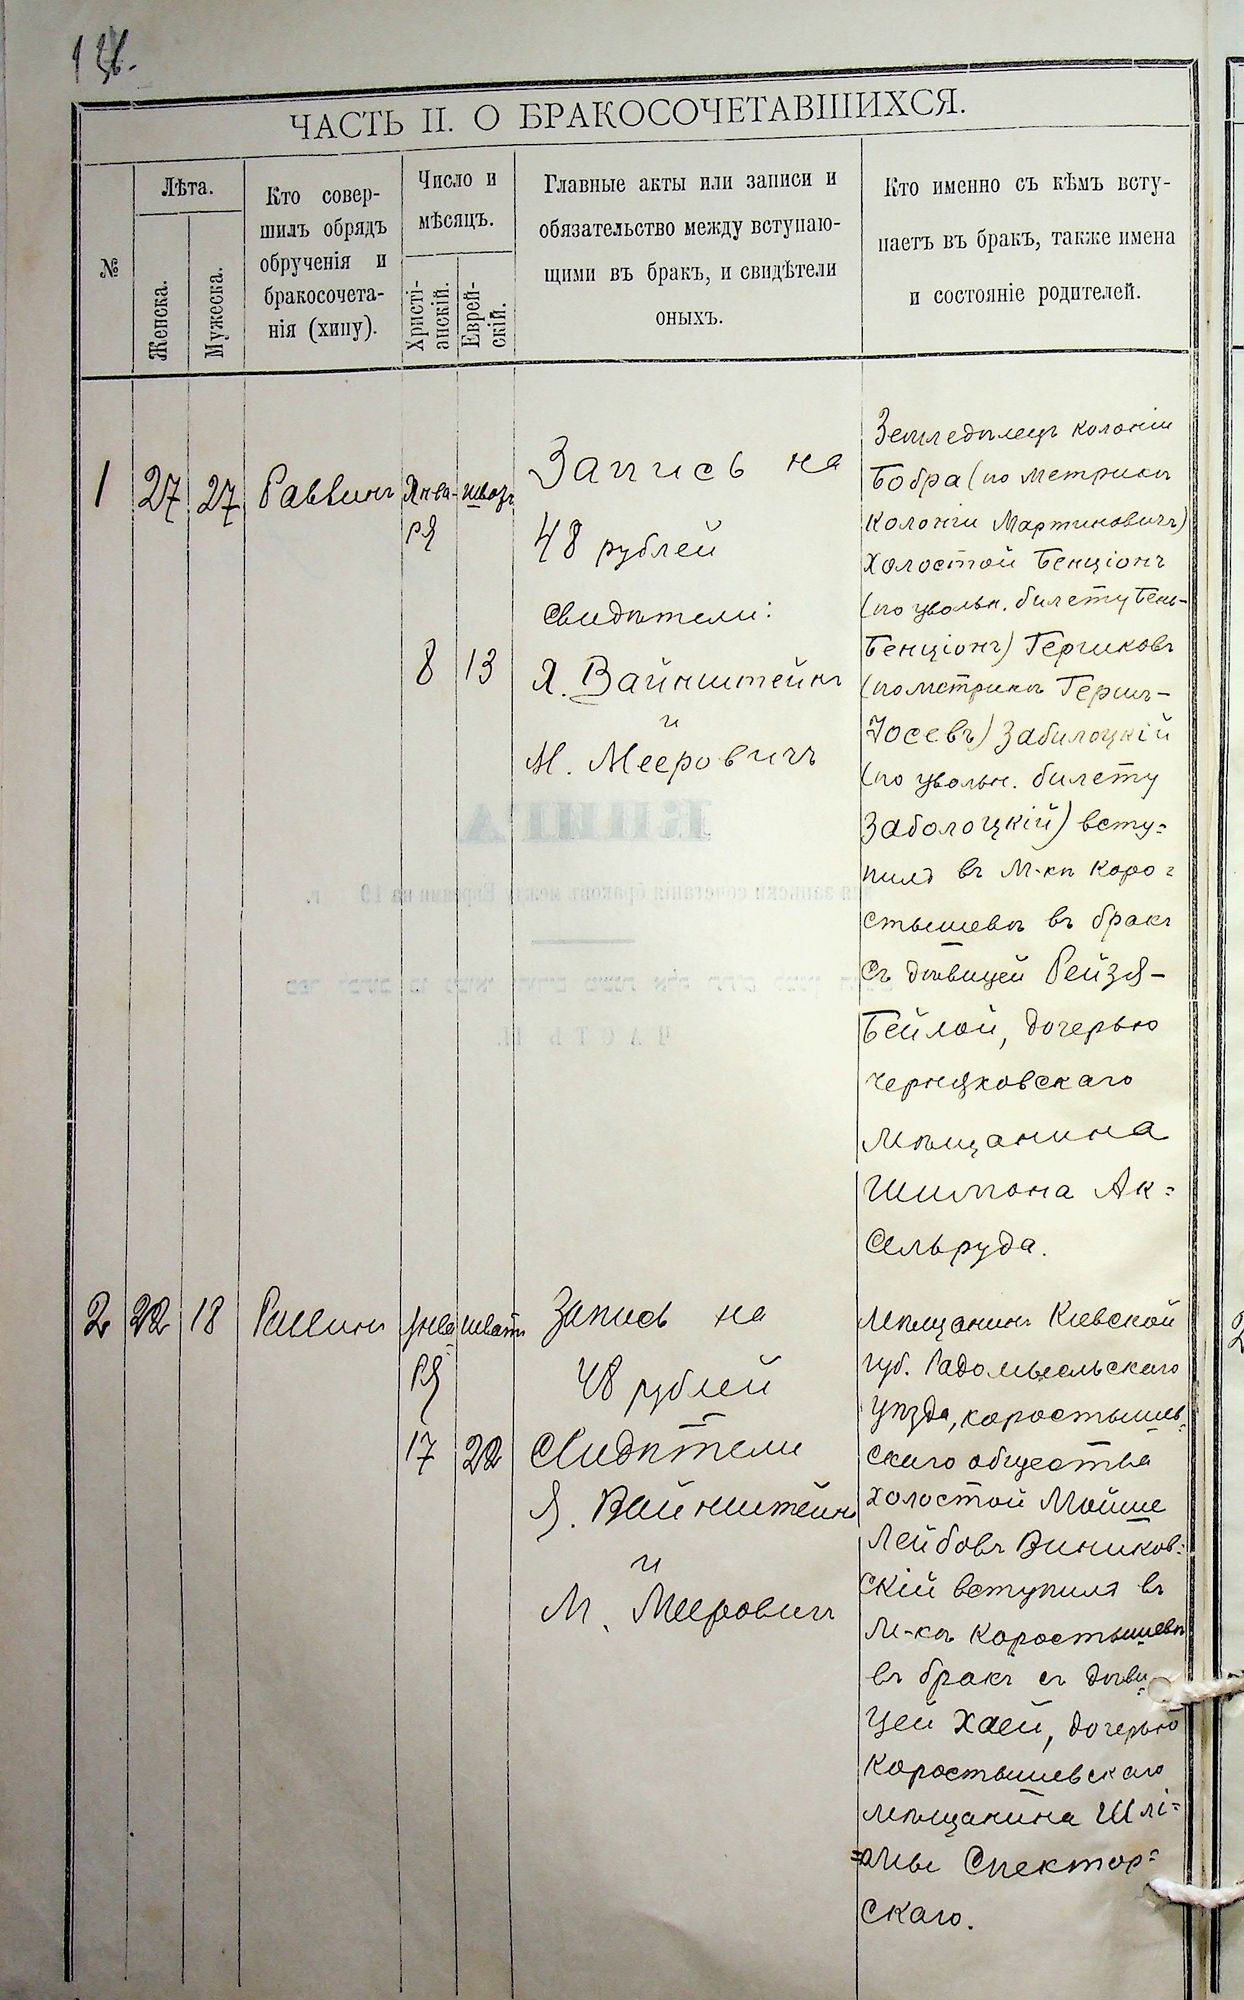 ЧАСТЬ II. О БРАКОСОЧЕТАВШИХСЯ.
№
Лѣта.
Женска.
Мужеска.
Кто совер-
шилъ обрядъ
обрученія и
бракосочета-
нія (хипу).
Число и
мѣсяцъ.
Христі-
анскій.
Еврей-
скій.
Главные акты или записи и
обязательство между вступаю-
щими въ бракъ, и свидѣтели
оныхъ.
Кто именно съ кѣмъ всту-
паетъ въ бракъ, также имена
и состояніе родителей.
1
27
27
Раввинъ
Янва-
ря
8
13
Запись на
48 рублей
Свидѣтели:
Я. Вайнштейнъ
и
М. Мееровичъ
Земледѣлецъ колоніи
Бобра (по метрикѣ
колоніи Мартиновичъ)
холостой Бенціонъ
(по увольн. билету Бень-
Бенціонъ) Гершковъ
(по метрикѣ Герш-
Іосевъ) Забилоцкій
(по увольн. билету
Заболоцкій) всту=
пилъ въ М-кѣ Коро=
стышевѣ въ бракъ
съ дѣвицей Рейзя-
Бейлой, дочерью
черняховскаго
мѣщанина
Шимона Ак=
сельруда.
2
22
18
Раввинъ
Янва
ря
шватъ
17
22
Запись на
48 рублей
Свидѣтели
Я. Вайнштейнъ
и
М. Мееровичъ
Мѣщанинъ Кіевской
губ. Радомысльскаго
уѣзда, коростышев=
скаго общества
холостой Мойше
Лейбовъ Виников=
скій вступилъ въ
М-кѣ Коростышевѣ
въ бракъ съ дѣви=
цей Хаей, дочерью
коростышевскаго
мѣщанина Шлі=
=омы Спектор=
скаго.